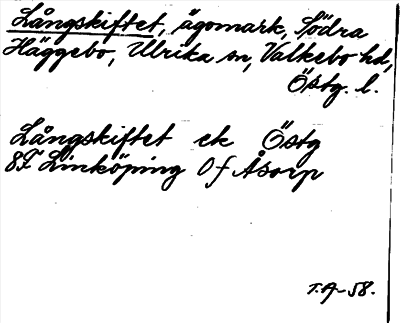 Långskiftet, ägomark, Södra
Häggebo, Ulrika sn, Valkebo hd,
Östg. l.
Långskiftet ek Östg
8F Linköping 0 f Åsorp
T.A-58.